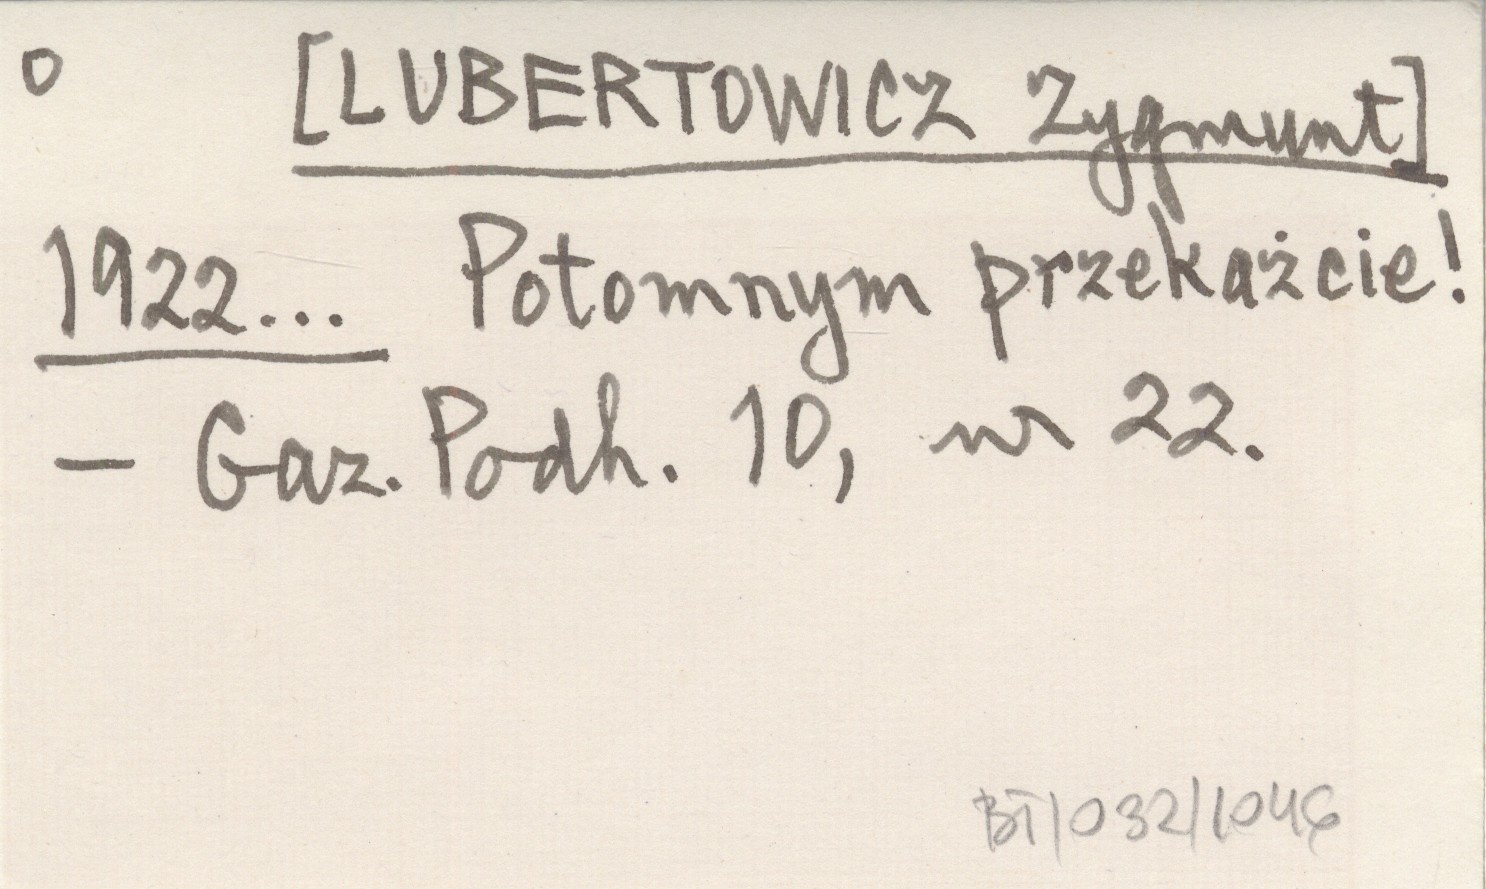 o [LUBERTOWICZ Zygmunt]
1922... Potomnym przekażcie!
— Gaz. Podh. 10, nr 22.
BT/032/1046